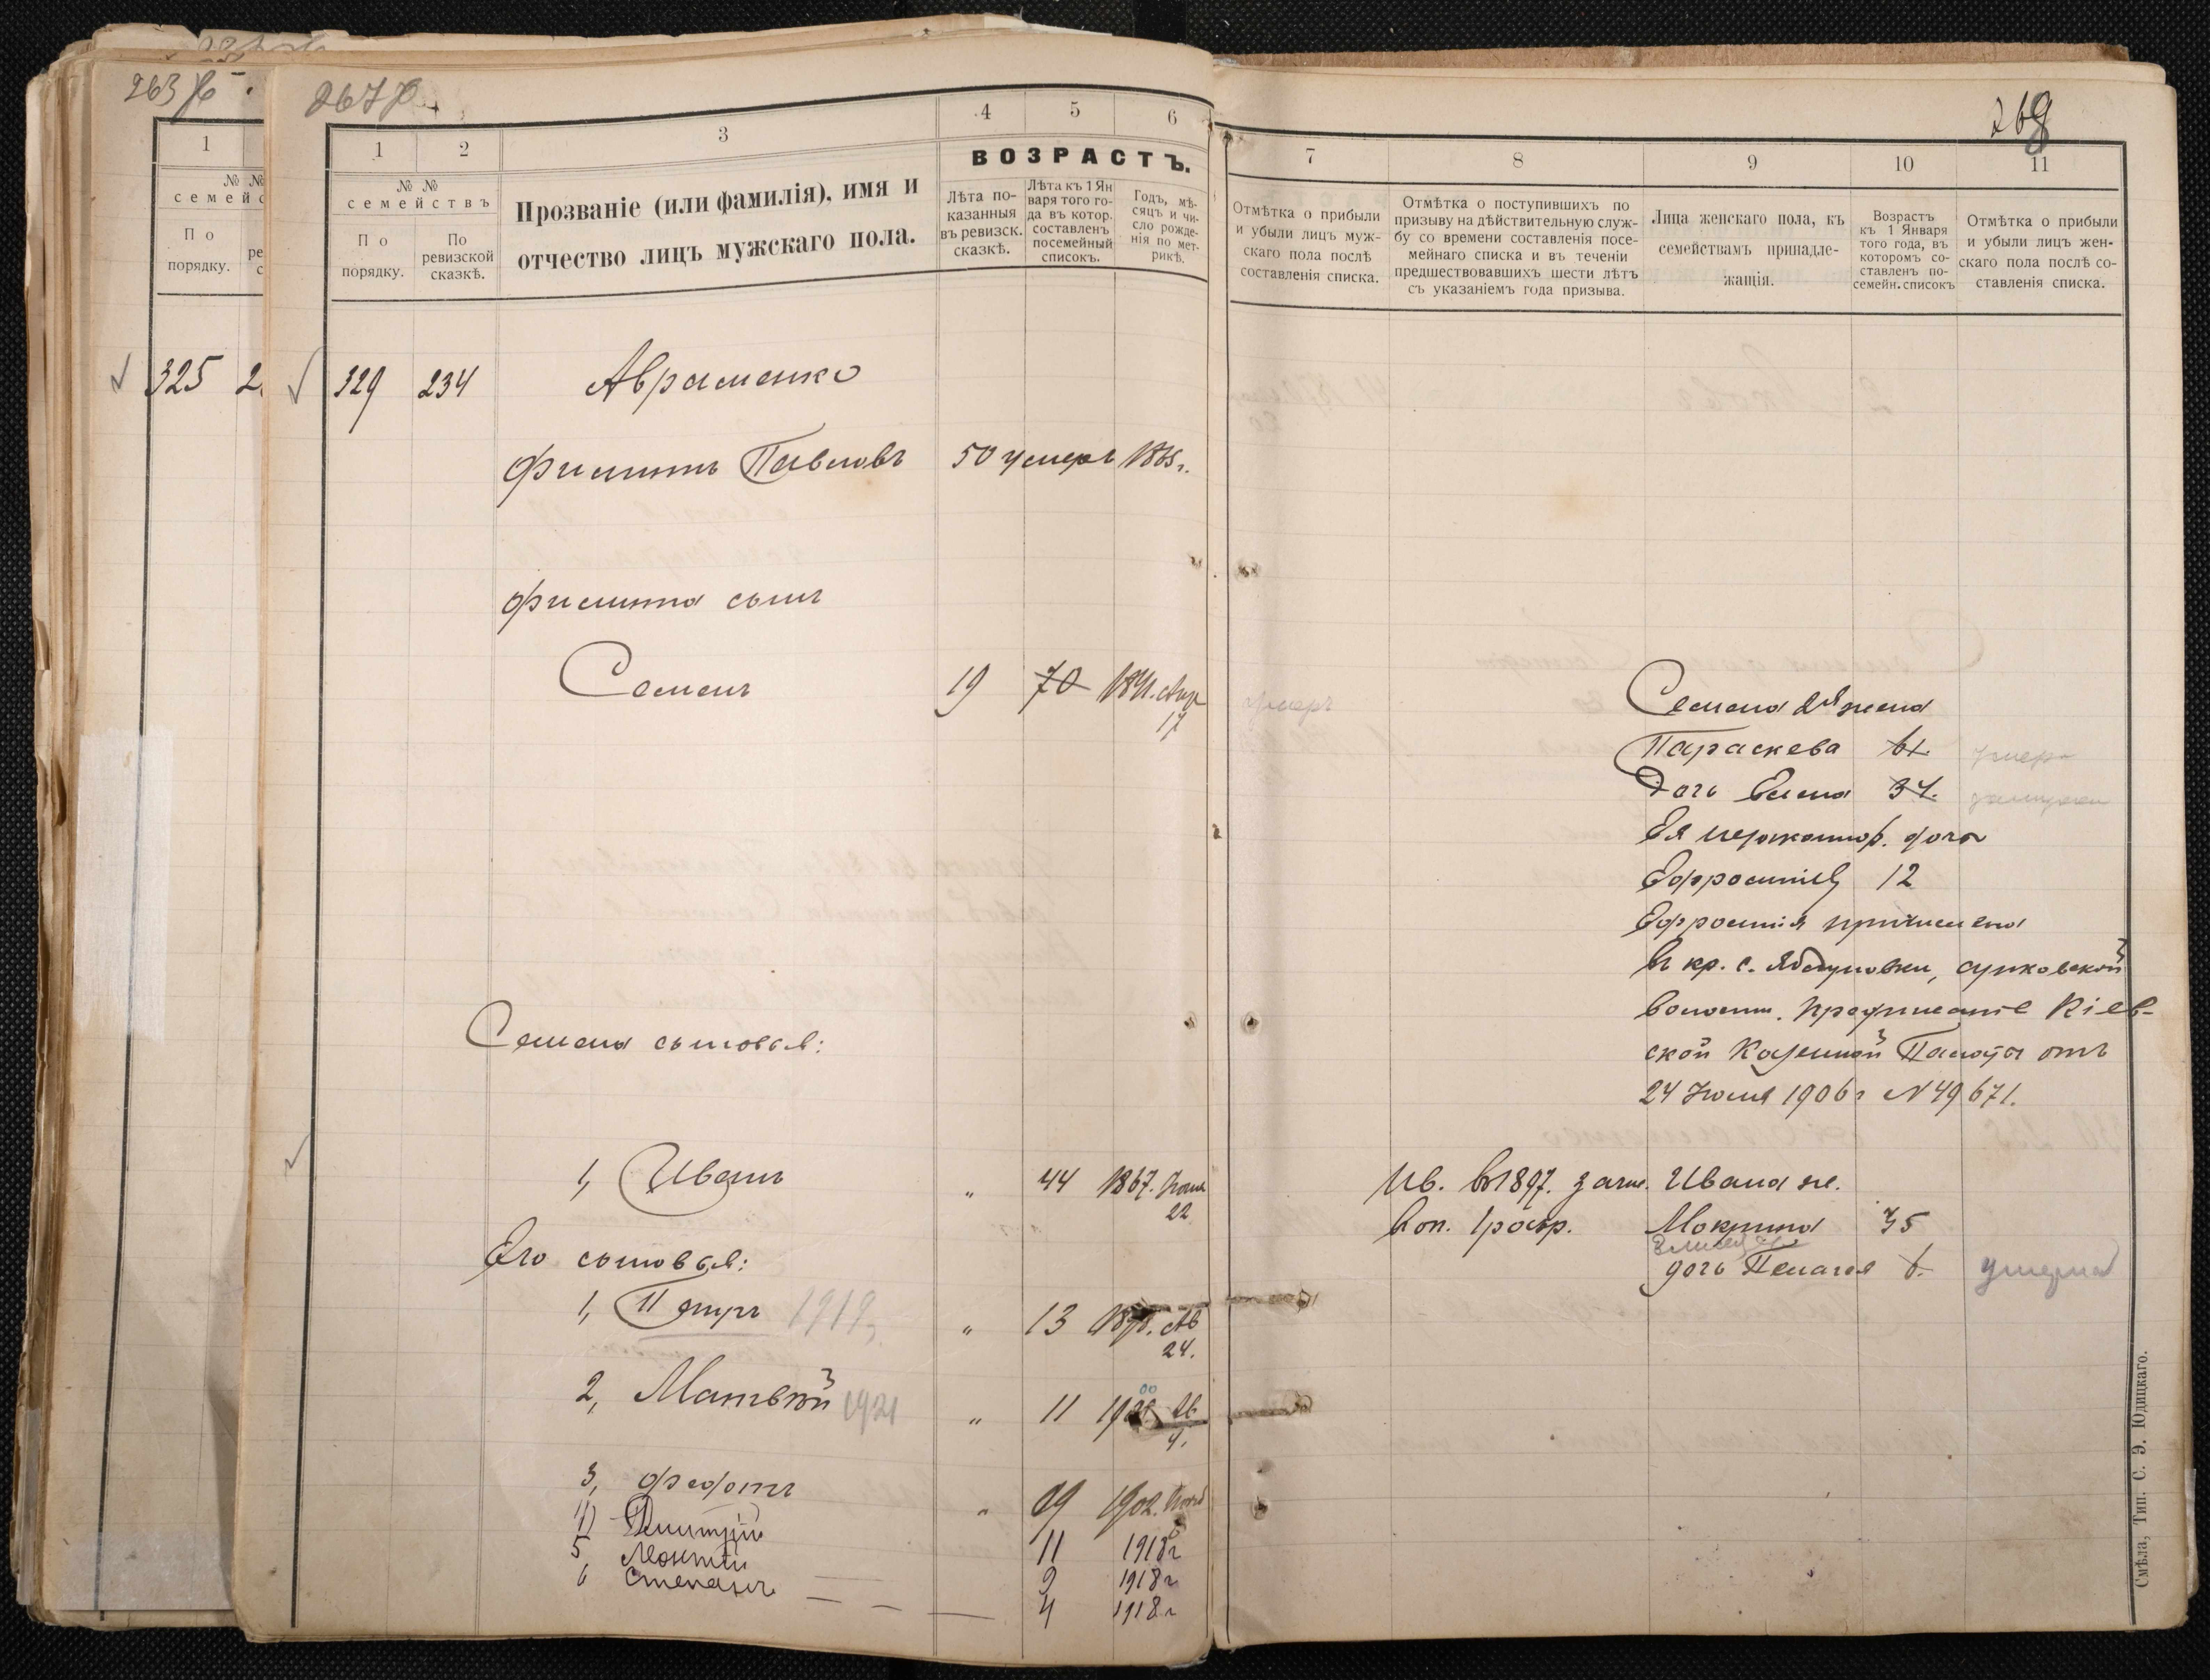 263
267
1
№ №
По
порядку.
325
1
2
3
4
5
6
№ №
семействъ
По
порядку.
По
ревизской
сказкѣ.
Прозваніе (или фамилія), имя и
отчество лицъ мужскаго пола.
ВОЗРАСТЪ.
Лѣта по-
казанныя
въ ревизск.
сказкѣ.
Лѣта къ 1 Ян
варя того го-
да въ котор.
составленъ
посемейный
списокъ.
Годъ, мѣ-
сяцъ и чи-
сло рожде-
нія по мет-
рикѣ.
329 234 Авраменко
Филиппъ Павловъ 50 умеръ
Филиппа сынъ
Семенъ 19 70 1841. Апр
17
Семена сыновья:
1, Иванъ " 44 1867. Іюня
22
Его сыновья:
1, Петръ 1919 " 13 Ав
24.
2, Матвѣй 1921 " 11 Ав
4.
3, Федотъ " 09 1902.
4) Дмитрій 11 1918г
5, 9 1918г
6 Степанъ 4 1918г
268
7
8
9
10
11
Отмѣтка о прибыли
и убыли лицъ муж-
скаго пола послѣ
составленія списка.
Отмѣтка о поступившихъ по
призыву на дѣйствительную служ-
бу со времени составленія посе-
мейнаго списка и въ теченіи
предшествовавшихъ шести лѣтъ
съ указаніемъ года призыва.
Лица женскаго пола, къ
семействамъ принадле-
жащія.
Возрастъ
къ 1 Января
того года, въ
которомъ со-
ставленъ по-
семейн. списокъ
Отмѣтка о прибыли
и убыли лицъ жен-
скаго пола послѣ со-
ставленія списка.
умеръ Семена 2я жена
Параскева 61. умер
Дочь Елена 34. замужем
Ея незаконнор. дочь
Ефросинія 12
Ефросинія причислена
въ кр. с. Яблуновки, Сунковской
волости. Предписаніе Кіев-
ской Казенной Палаты отъ
24 Іюля 1906 г N 49671.
Ив. въ 1897. зачис. Ивана же.
в оп. 1 разр. Мокрина 35
дочь Пелагея 6. умерла
Смѣла, Тип. С. Э. Юдицкаго.